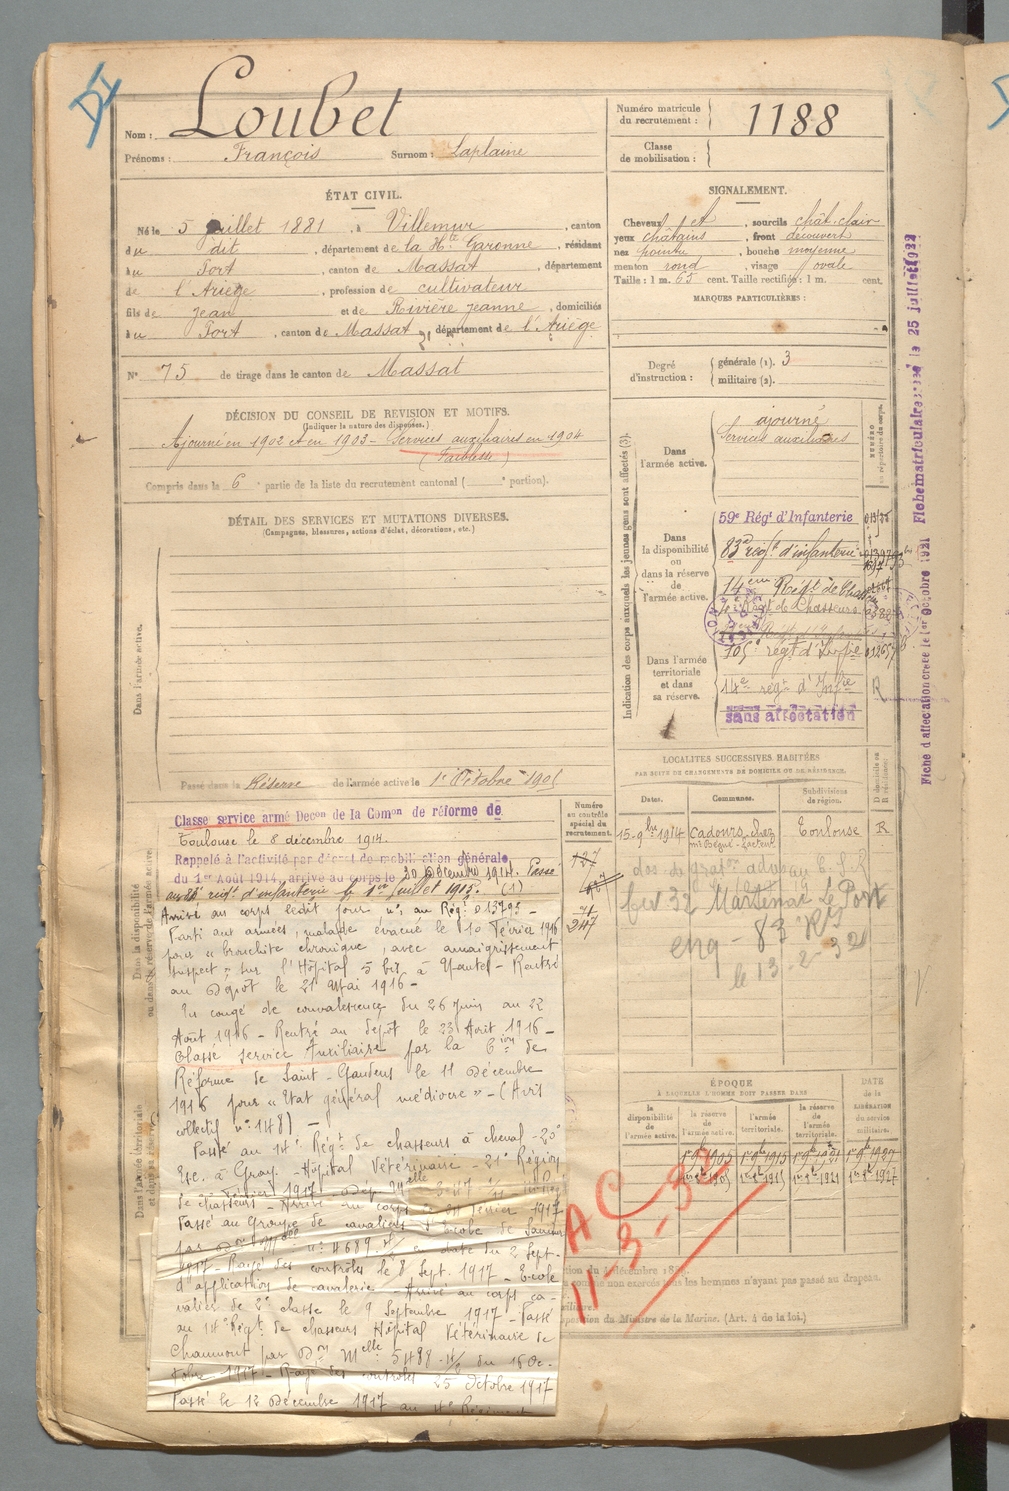 Loubet
Nom :
Prénoms : François Surnom : Laplaine
Numéro matricule
du recrutement : 1188
Classe
de mobilisation :
ÉTAT CIVIL.
Né le 5 juillet 1881, à Villemur, canton
du dit, département de la Hte Garonne, résidant
au Port, canton de Massat, département
de l'Ariège, profession de cultivateur
fils de Jean et de Rivière Jeanne, domiciliés
au Port, canton de Massat, département de l'Ariège
N° 75 de tirage dans le canton de Massat
SIGNALEMENT.
Cheveux et, sourcils chât. clair
yeux châtains, front découvert
nez pointu, bouche moyenne
menton rond, visage ovale
Taille : 1 m. 65 cent. Taille rectifiée : 1 m. cent.
MARQUES PARTICULIÈRES :
Degré
d'instruction :
générale (1). 3
militaire (2).
DÉCISION DU CONSEIL DE REVISION ET MOTIFS.
(Indiquer la nature des dispenses.)
Ajourné en 1902 et en 1903 - Services auxiliaires en 1904
(Faiblesse)
Compris dans la 6e partie de la liste du recrutement cantonal ( e portion).
DÉTAIL DES SERVICES ET MUTATIONS DIVERSES.
(Campagnes, blessures, actions d'éclat, décorations, etc.)
Dans l'armée active.
Passé dans la Réserve de l'armée active le 1er Octobre 1905
Indication des corps auxquels les jeunes gens sont affectés (3).
Dans
l'armée active.
ajourné
Services auxiliaires
Dans
la disponibilité
ou
dans la réserve
de
l'armée active.
59e Régt d'Infanterie
83e régt d'infanterie
14em Régt de Chasseurs
Régt de Chasseurs
Dans l'armée
territoriale
et dans
sa réserve.
105e régt d'Infie
14e régt d'Infie R
sans affectation
Fiche d'affectation créée le 1er octobre 1921 Fiche matriculaire le 25 juillet 1922
LOCALITÉS SUCCESSIVES HABITÉES
PAR SUITE DE CHANGEMENTS DE DOMICILE OU DE RÉSIDENCE.
Dates. Communes. Subdivisions
de région.
15-9bre 1914 Cadours, chez Toulouse R
facteur
Martenac Le Port
eng - 83 Rt
le 13-2-32
Numéro
au contrôle
spécial du
recrutement.
127
247
Classé service armé Deçon de la Comon de réforme de
Toulouse le 8 décembre 1914.
Rappelé à l'activité par décret de mobilisation générale
du 1er Août 1914, arrivé au corps le 30 Décembre 1914. Passé
au 83e régt d'infanterie le 1er juillet 1915. (1)
Arrivé au corps ledit jour n° au Régt 013793 -
Parti aux armées, malade évacué le 10 Février 1916
pour « bronchite chronique, avec amaigrissement
suspect » sur l'Hôpital 5 bis à - Rentré
au Dépôt le 21 Mai 1916 -
En congé de convalescence du 26 Juin au 22
Août 1916 - Rentré au dépôt le 23 Août 1916 -
Classé service Auxiliaire par la Cion de
Réforme de Saint-Gaudens le 11 Décembre
1916 pour « Etat général médiocre » - (Avis
collectif n° 148) -
Passé au 14e Régt de chasseurs à cheval - 20e
Esc. à Gray - Hôpital Vétérinaire - 21e Région
de chasseurs - Arrivé au corps le Février 1917
Passé au Groupe de cavaliers d'Ecole de Saumur
par n° 4689 en date du 2 Sept.
1917 - Rayé des contrôles le 8 Sept. 1917 - Ecole
d'application de cavalerie - Arrivé au corps ca-
valier de 2e classe le 9 Septembre 1917 - Passé
au 14e Régt de chasseurs Hôpital Vétérinaire de
Chaumont par Don Melle 5488 du 16 Oc-
tobre 1917 - Rayé des contrôles 25 Octobre 1917
Passé le 12 Décembre 1917 au Régiment
ÉPOQUE
À LAQUELLE L'HOMME DOIT PASSER DANS
la
disponibilité
de
l'armée active.
la réserve
de
l'armée active.
l'armée
territoriale.
la réserve
de
l'armée
territoriale.
DATE
de la
LIBÉRATION
du service
militaire.
1er 9bre 1905 1er 9bre 1915 1er 9bre 1921 1er 9bre 1927
1er 8bre 1905 1er 8bre 1915 1er 8bre 1921 1er 8bre 1927
AC
11-3-32
comme non exercés tous les hommes n'ayant pas passé au drapeau.
disposition du Ministre de la Marine. (Art. 4 de la loi.)